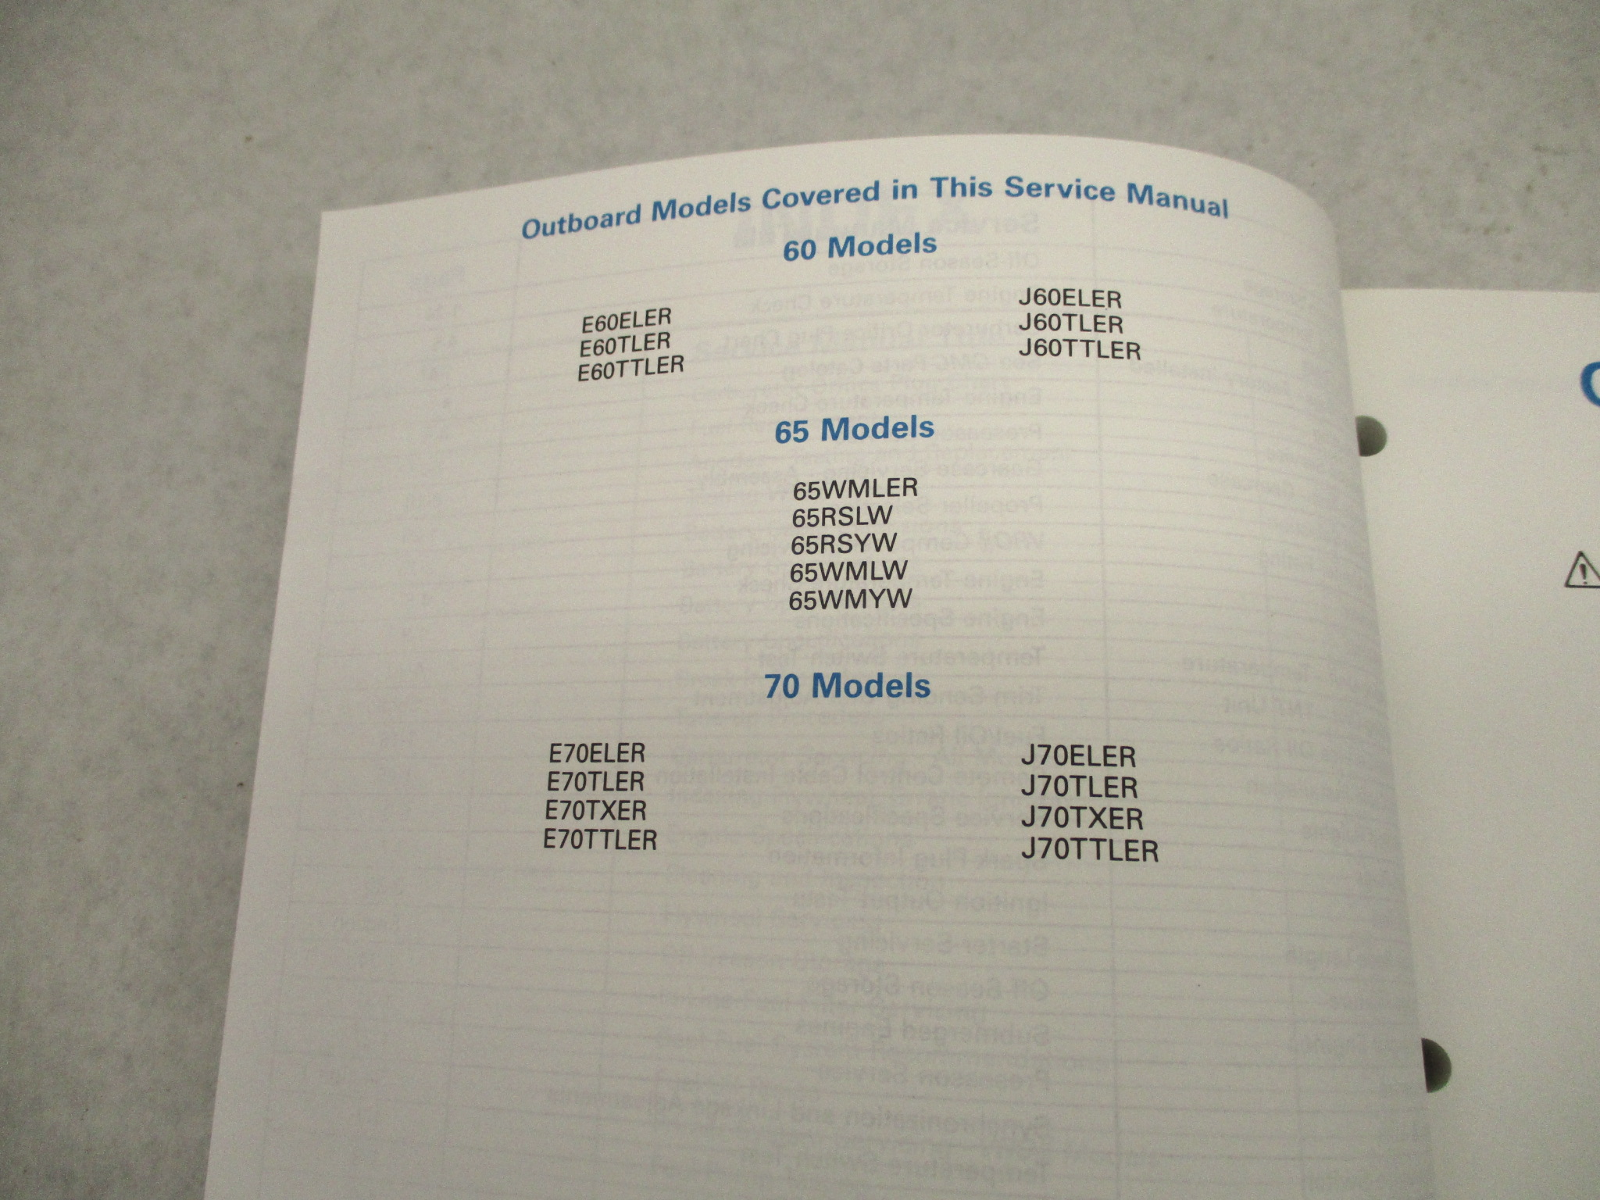 Outboard Models Covered in This Service Manual
60 Models
E60ELER
E60TLER
E60TTLER
J60ELER
J60TLER
J60TTLER
65 Models
65WMLER
65RSLW
65RSYW
65WMLW
65WMYW
70 Models
E70ELER
E70TLER
E70TXER
E70TTLER
J70ELER
J70TLER
J70TXER
J70TTLER